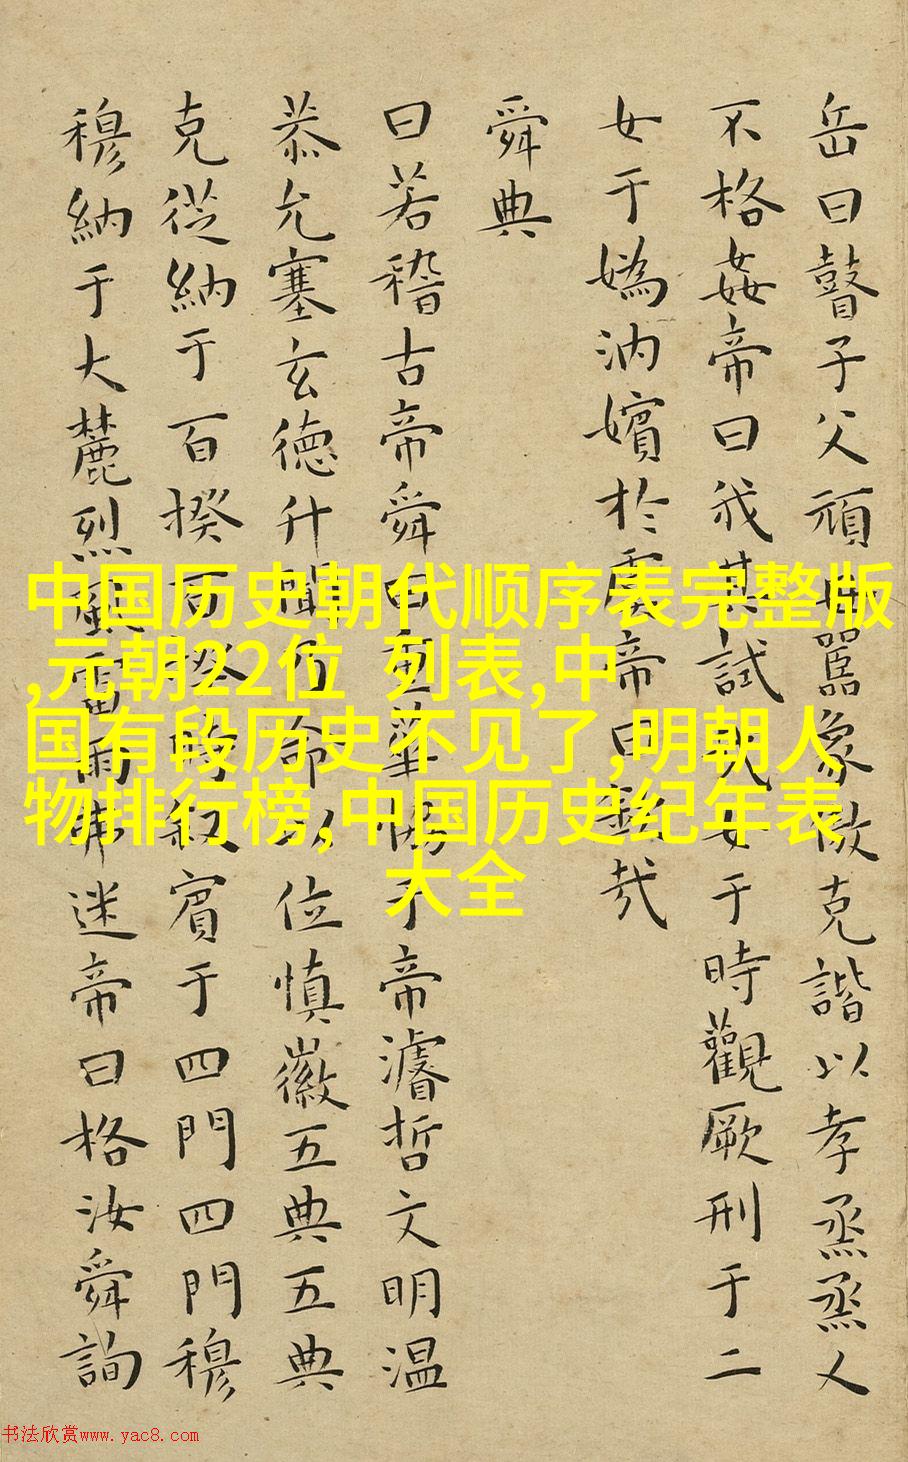 岳曰瞽子父頑母嚚象傲克諧以孝烝烝乂
不格姦帝曰我其試哉女于時觀厥刑于二
女于媯汭嬪於虞帝曰欽哉
舜典
曰若稽古帝舜曰重華協于帝濬哲文明温
恭允塞玄德升聞乃命以位慎徽五典五典
克從納于百揆百揆時叙賓于四門四門穆
穆納于大麓烈風雷雨弗迷帝曰格汝舜詢
中国历史朝代顺序表完整版
,元朝22位 列表,中
国有段历史不见了,明朝人
物排行榜,中国历史纪年表
大全
书法欣赏www.yac8.com